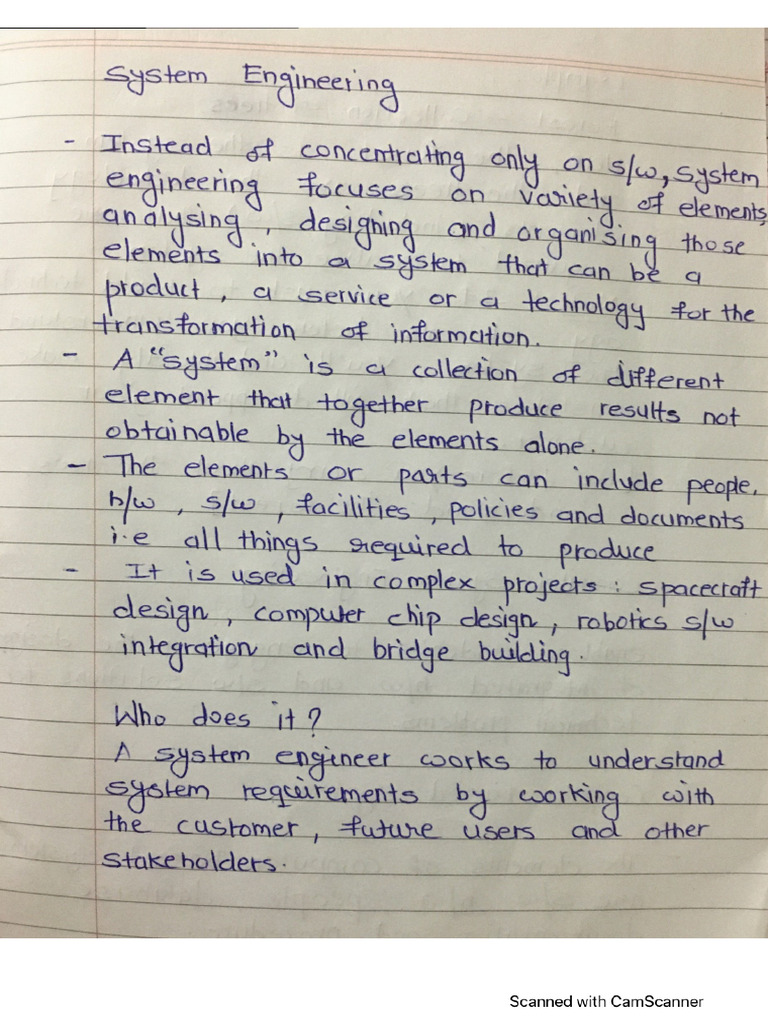 System Engineering
- Instead of concentrating only on s/w, system
engineering focuses on variety of elements,
analysing, designing and organising those
elements into a system that can be a
product, a service or a technology for the
transformation of information.
- A "system" is a collection of different
element that together produce results not
obtainable by the elements alone.
- The elements or parts can include people,
h/w, s/w, facilities, policies and documents
i.e all things required to produce
- It is used in complex projects: spacecraft
design, computer chip design, robotics s/w
integration and bridge building.
Who does it?
A system engineer works to understand
system requirements by working with
the customer, future users and other
stakeholders.
Scanned with CamScanner